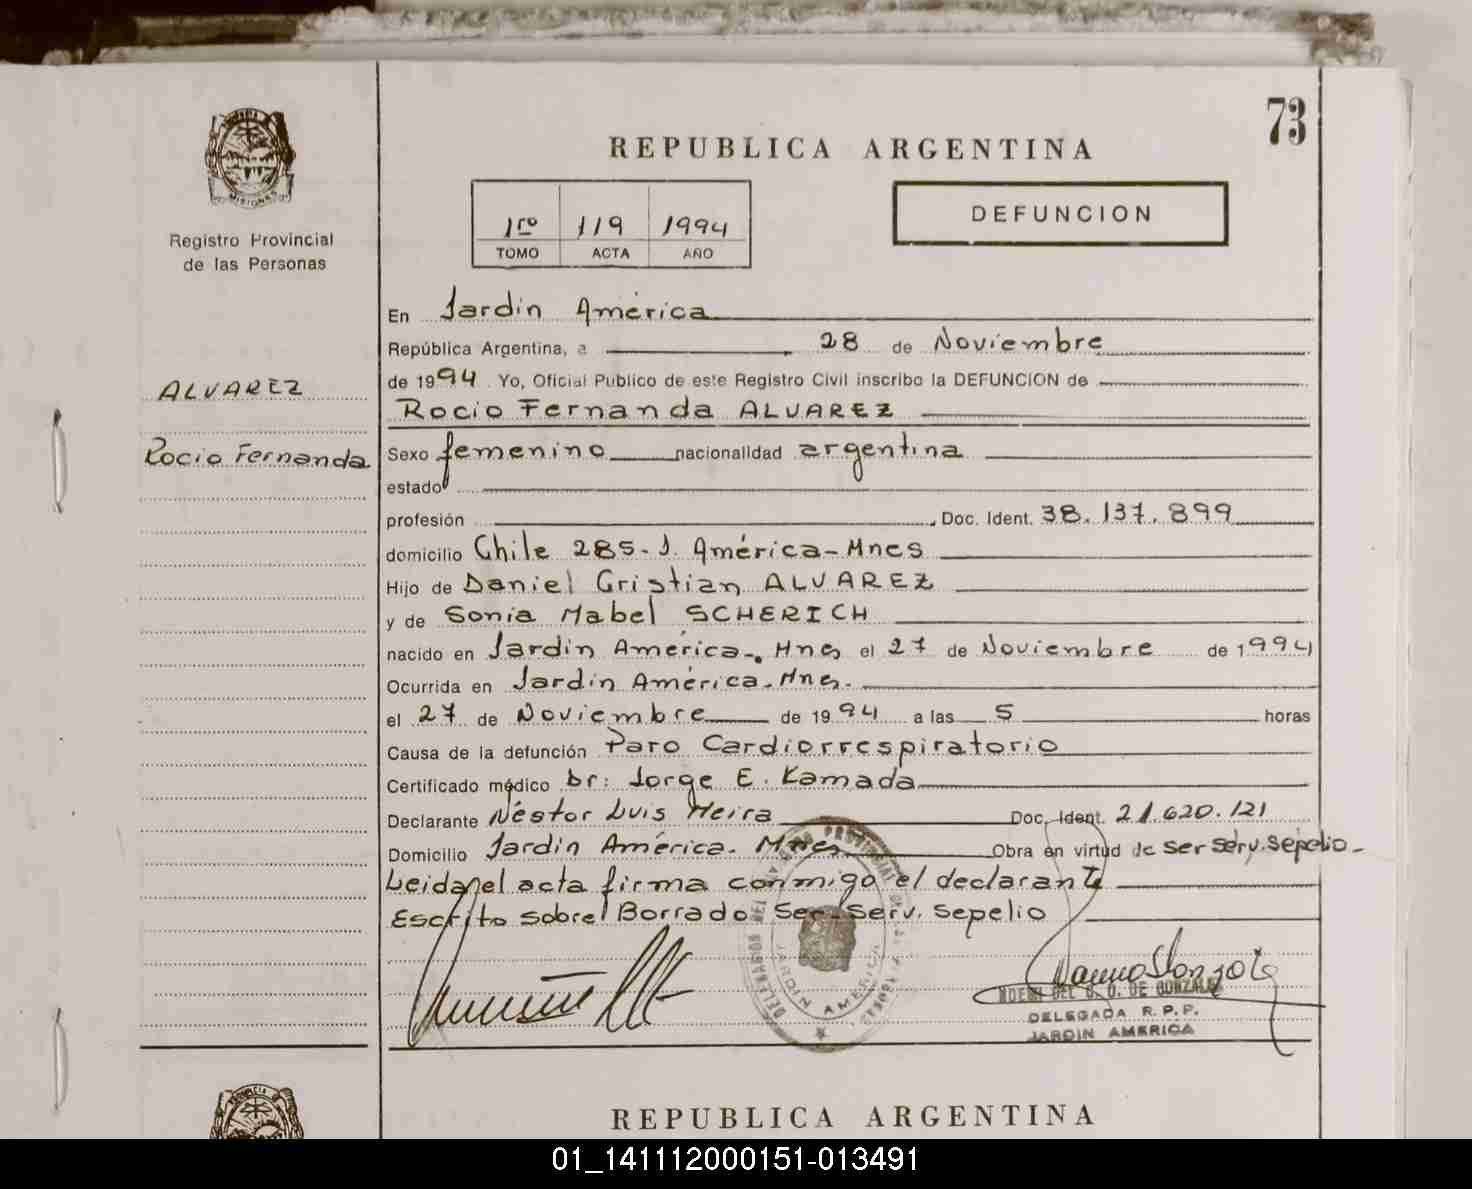 73
REPUBLICA ARGENTINA
PROVINCIA DE
MISIONES
Registro Provincial
de las Personas
1ro 119 1994
TOMO ACTA AÑO
DEFUNCION
En Jardín América
República Argentina, a 28 de Noviembre
de 1994. Yo, Oficial Publico de este Registro Civil inscribo la DEFUNCION de
ALVAREZ
Rocio Fernanda ALVAREZ
Rocio Fernanda
Sexo femenino nacionalidad argentina
estado
profesión Doc. Ident. 38.137.899
domicilio Chile 285-J. América-Mnes
Hijo de Daniel Cristian ALVAREZ
y de Sonia Mabel SCHERICH
nacido en Jardín América-. Mnes el 27 de Noviembre de 1994
Ocurrida en Jardín América. Mnes.
el 27 de Noviembre de 1994 a las 5 horas
Causa de la defunción Paro Cardiorrespiratorio
Certificado médico Dr: Jorge E. Kamada
Declarante Néstor Luis Meira Doc. Ident. 21.620.121
Domicilio Jardín América. Mnes Obra en virtud de ser serv. sepelio-
Leida el acta firma conmigo el declarante
Escrito sobre Borrado Ser-Serv. Sepelio
JARDIN AMERICA
DEL G. O. DE GONZALEZ
DELEGADA R.P.P.
JARDIN AMERICA
REPUBLICA ARGENTINA
PROVINCIA DE
01_141112000151-013491